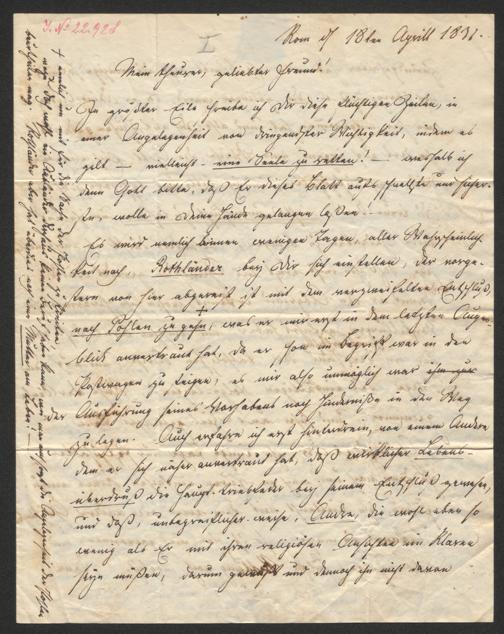 J. No 22,928
I
Rom d. 18ten Aprill 1831.
Mein theurer, geliebter Freund!
In größter Eile schreibe ich Dir diese flüchtigen Zeilen, in
einer Angelegenheit von dringendster Wichtigkeit, indem es
gilt — vielleicht — eine Seele zu retten! — weshalb ich
denn Gott bitte, daß Er dieses Blatt aufs schnellste und sicher-
ste, wolle in Deine Hände gelangen laßen. —
Es wird nemlich binnen wenigen Tagen, aller Wahrscheinlich-
keit nach, Rothländer bey Dir sich einstellen, der vorge-
stern von hier abgereist ist mit dem verzweifelten Entschluß,
nach Pohlen zu gehn, was er mir erst in dem letzten Augen-
blick anvertraut hat, da er schon im Begriff war in den
Postwagen zu steigen, es mir also unmöglich war
der Ausführung seines Vorhabens noch Hinderniße in den Weg
zu legen. Auch erfahre ich erst hinterdrein, von einem Andern
dem er sich näher anvertraut hat, daß wirklicher Lebens-
überdruß die Haupt-triebfeder bey seinem Entschluß gewesen,
und daß, unbegreiflicher weise, Andre, die wohl eben so
wenig als Er mit ihren religiösen Ansichten im Klaren
seyn müßen, darum gewußt und dennoch ihn nicht davon
+ nemlich um für die Sache der Pohlen zu
Rothländer aber hat überdies noch eine Mutter am Leben! —